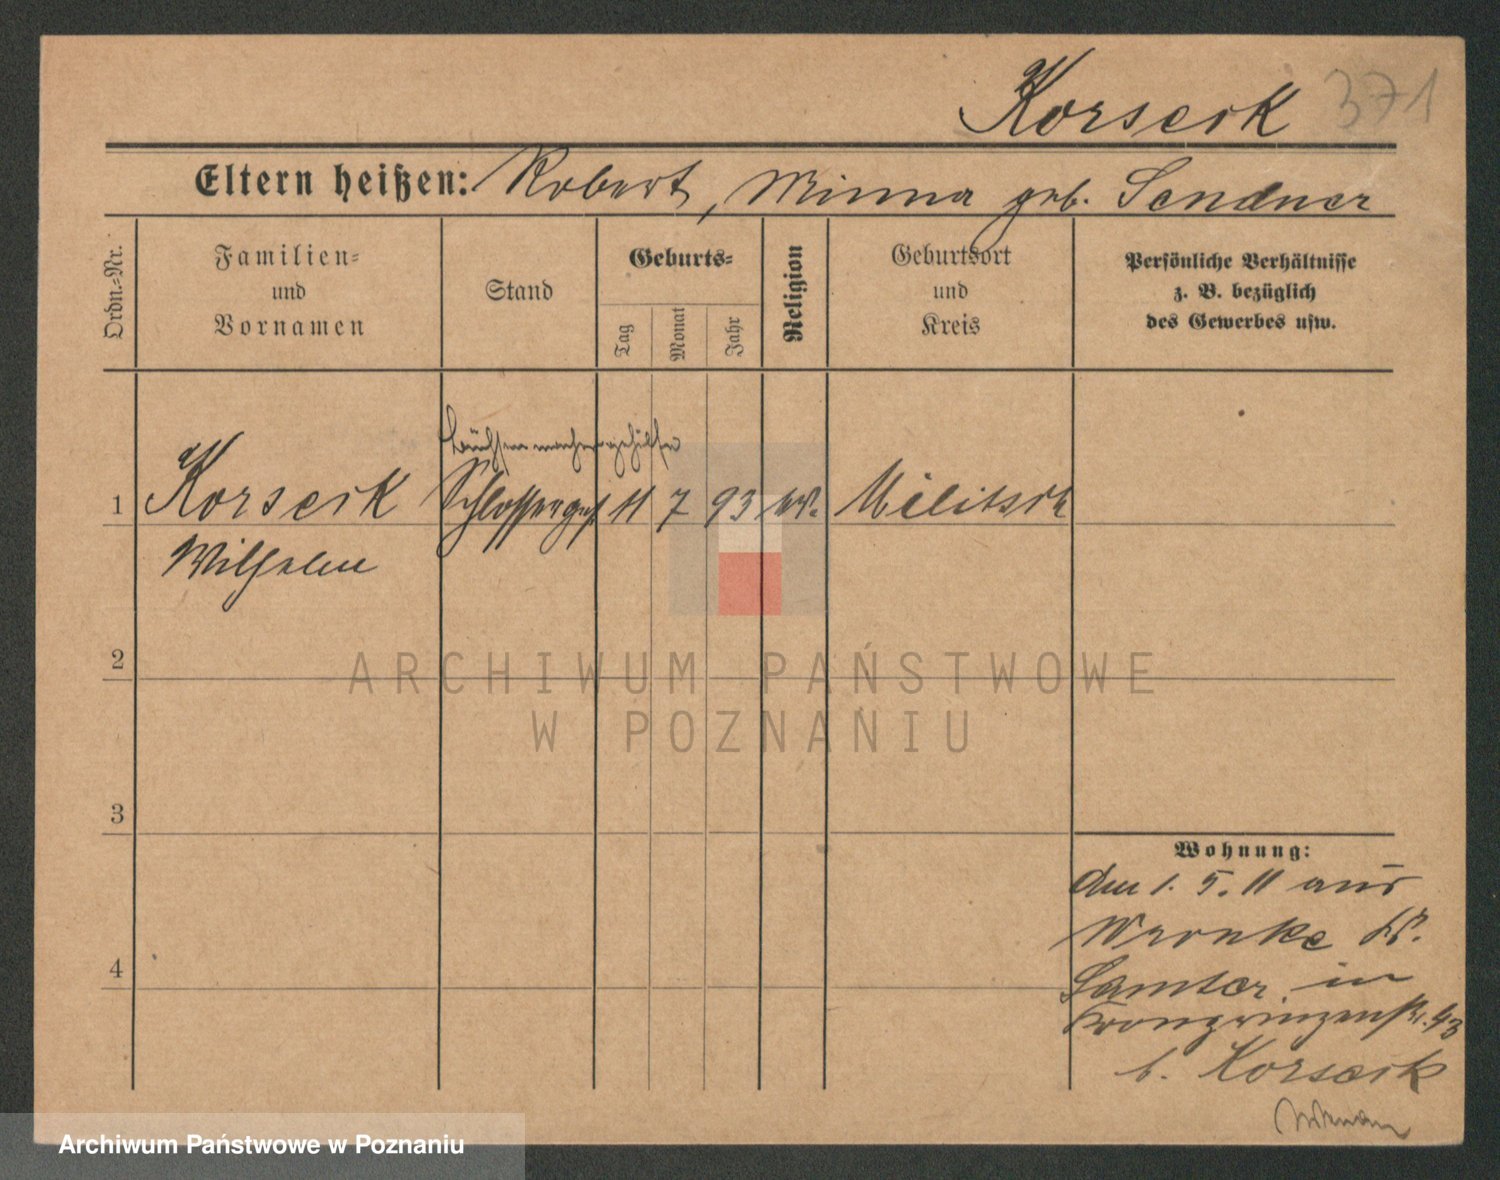 Korseik 371
Eltern heißen: Robert, Minna geb. Sendner
Ordn.-Nr.
Familien-
und
Vornamen
Stand
Geburts-
Tag
Monat
Jahr
Religion
Geburtsort
und
Kreis
Persönliche Verhältnisse
z. B. bezüglich
des Gewerbes usw.
Büchsenmachergehilfe
1 Korseik Schlosserges. 11 7 93 ev. Militsch
Wilhelm
2
3
4
Wohnung:
den 1. 5. 11 aus
Wronke Kr.
Samter in
Kronprinzenstr. 43
b. Korseik
ARCHIWUM PAŃSTWOWE
W POZNANIU
Archiwum Państwowe w Poznaniu